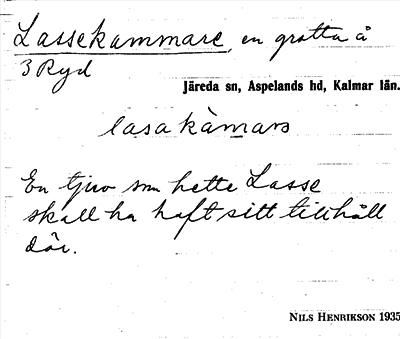 Lassekammare, en grotta å
3 Ryd
Järeda sn, Aspelands hd, Kalmar län.
lasakàmarə
En tjuv som hette Lasse
skall ha haft sitt tillhåll
där.
NILS HENRIKSON 1935